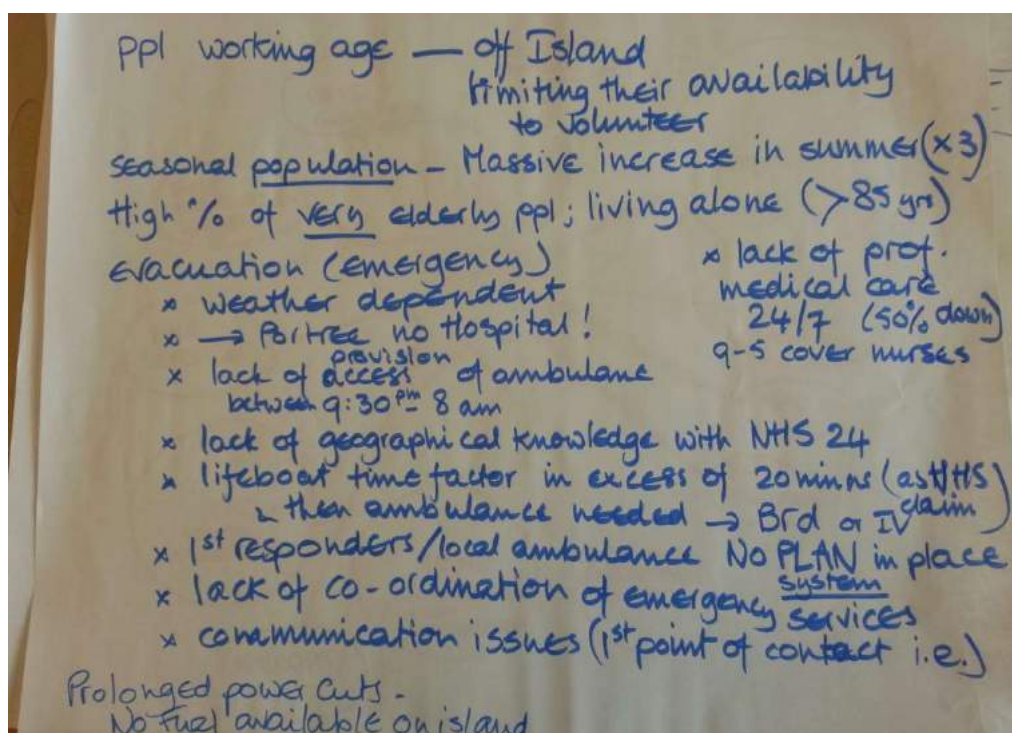 ppl working age — off Island
limiting their availability
to volunteer
seasonal population - Massive increase in summer (x3)
High % of very elderly ppl; living alone (>85 yrs)
Evacuation (emergency)
x weather dependent
x → Portree no Hospital!
x lack of access provision of ambulanc
between 9:30pm - 8 am
x lack of geographical knowledge with NHS 24
x lifeboat time factor in excess of 20 minns (as NHS claim)
then ambulance needed → Brd or IV
x 1st responders/local ambulance No PLAN in place
x lack of co-ordination of emergency system services
x communication issues (1st point of contact i.e.)
x lack of prof.
medical care
24/7 (50% down)
9-5 cover nurses
Prolonged power cuts -
No fuel available on island